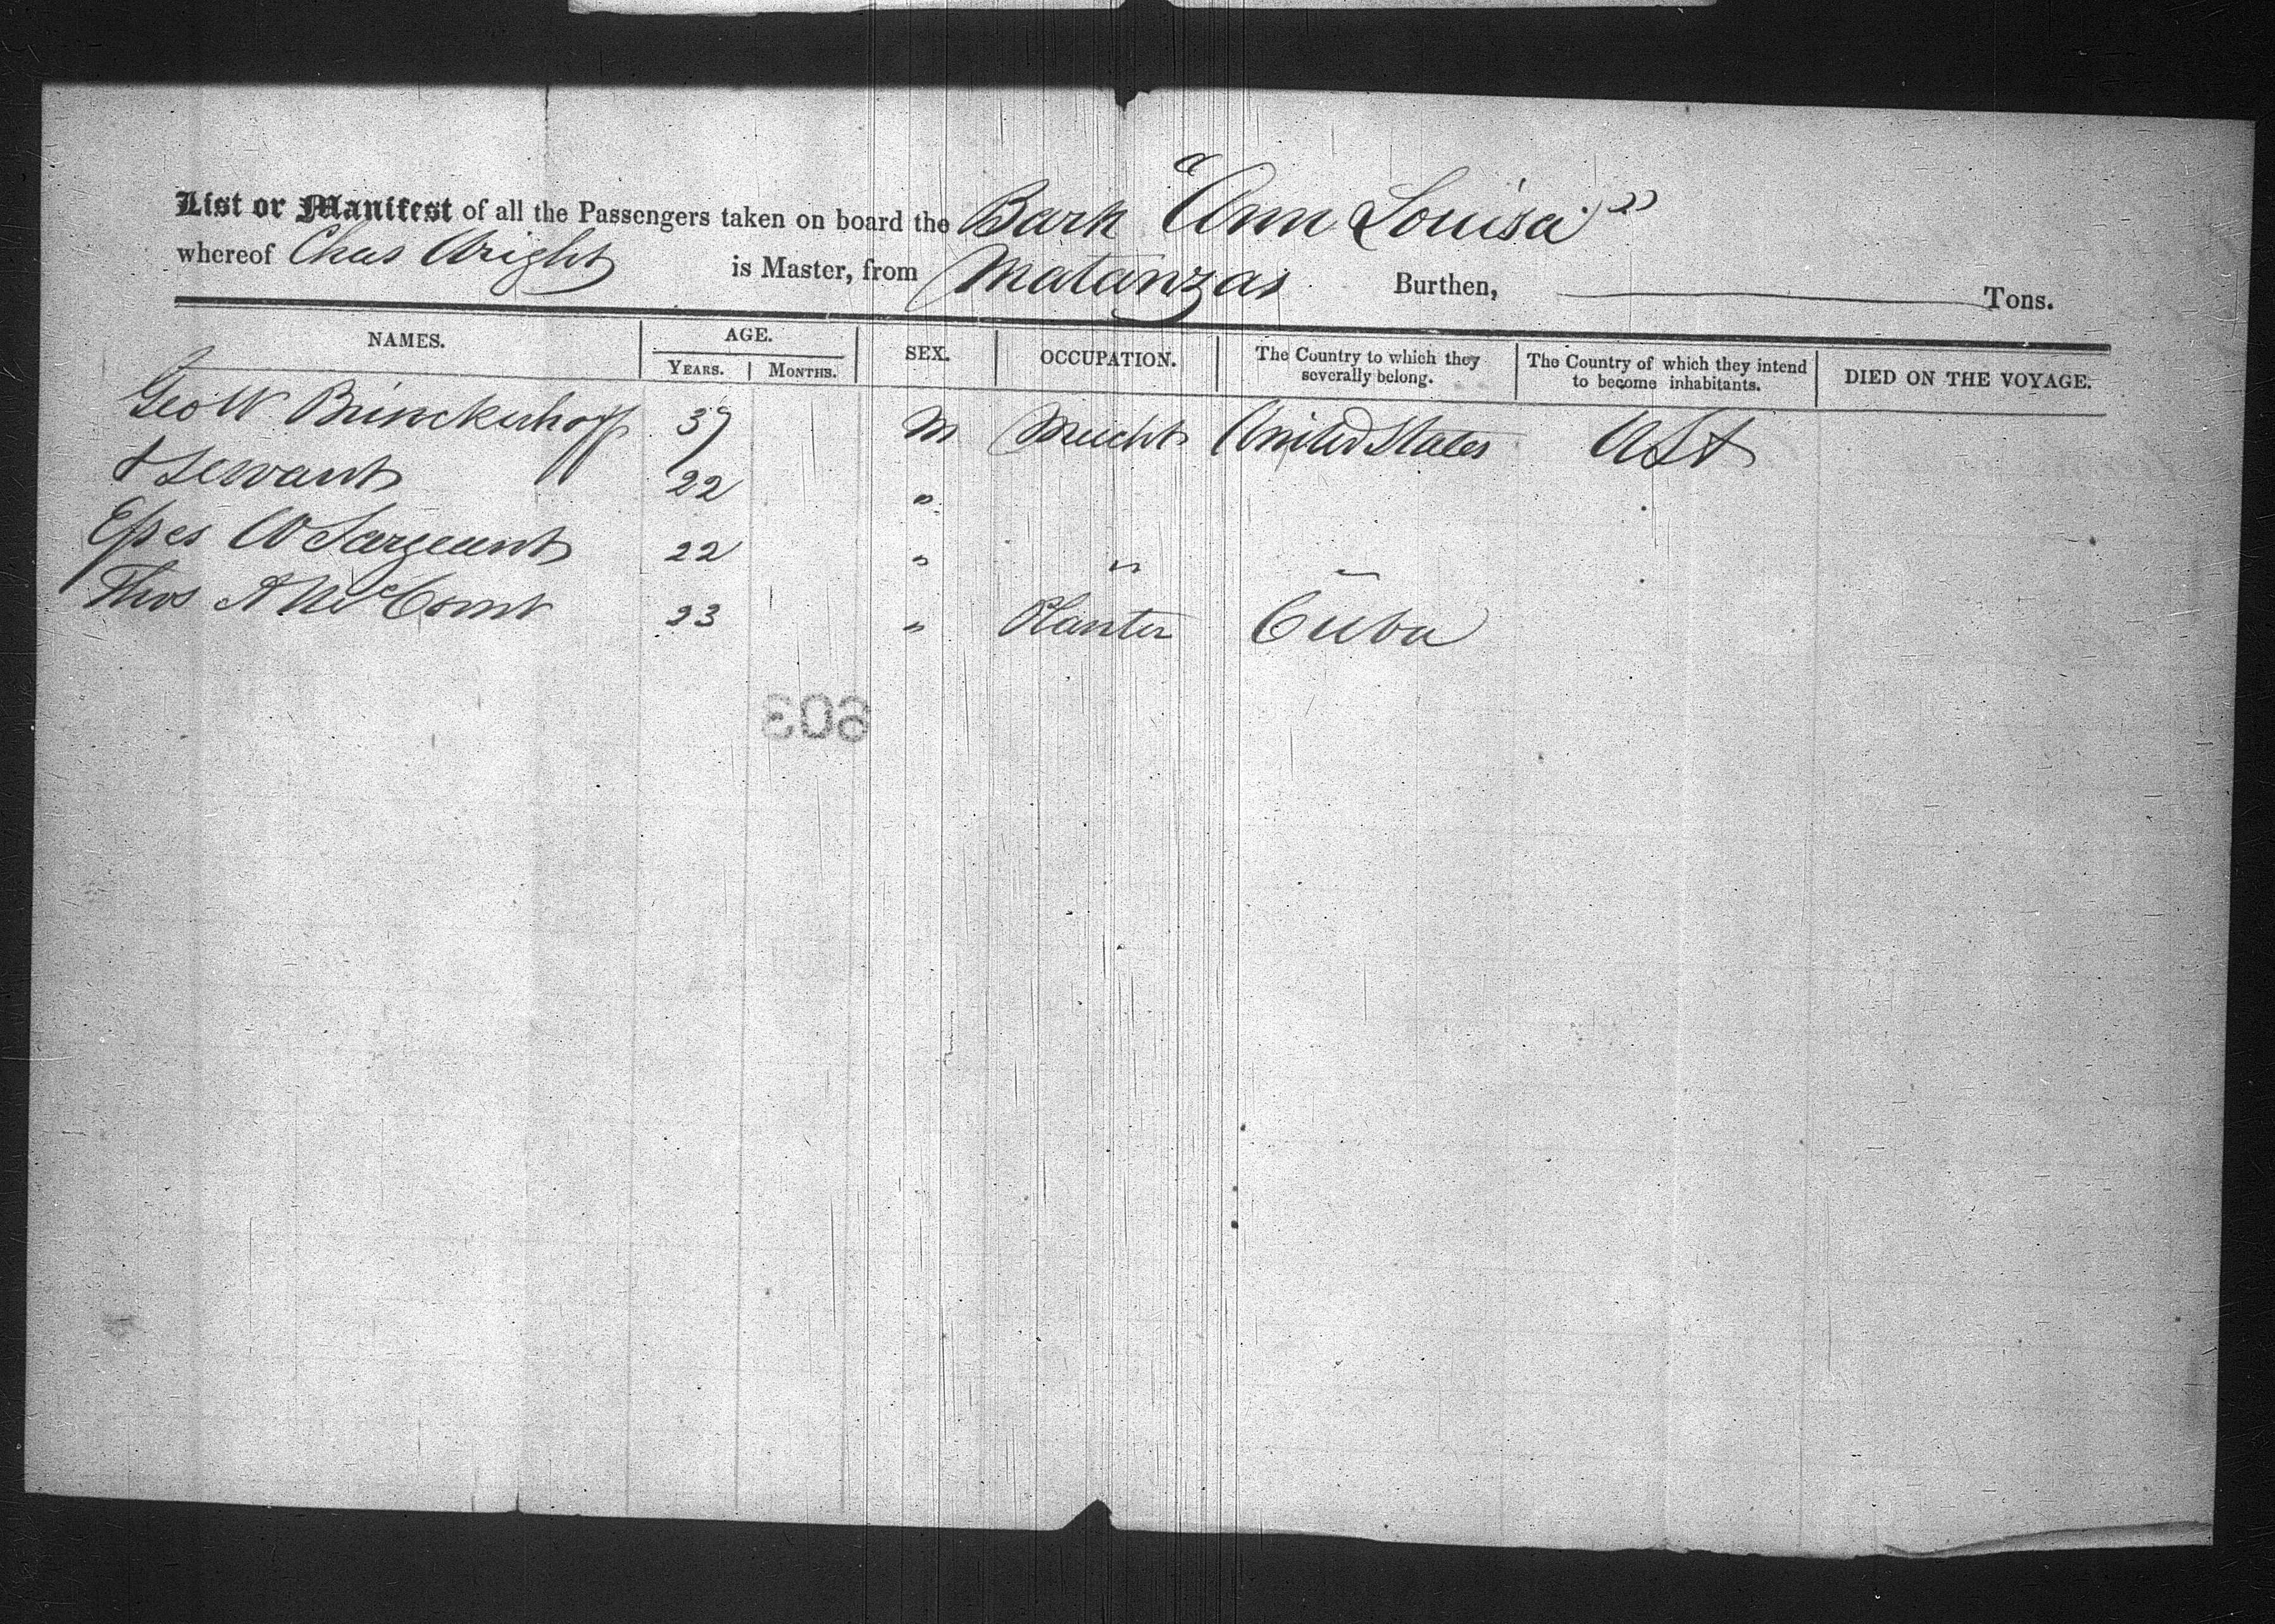 List or Manifest of all the Passengers taken on board the Bark "Ann Louisa"
whereof Chas Wright is Master, from Matanzas Burthen, Tons.
NAMES. AGE. SEX. OCCUPATION. The Country to which they severally belong. The Country of which they intend to become inhabitants. DIED ON THE VOYAGE.
YEARS. MONTHS.
Geo W Brinckerhoff 37 M Mercht United States
& servant 22 "
Epes W Sargeant 22 " " "
Thos A 23 " Planter Cuba
603